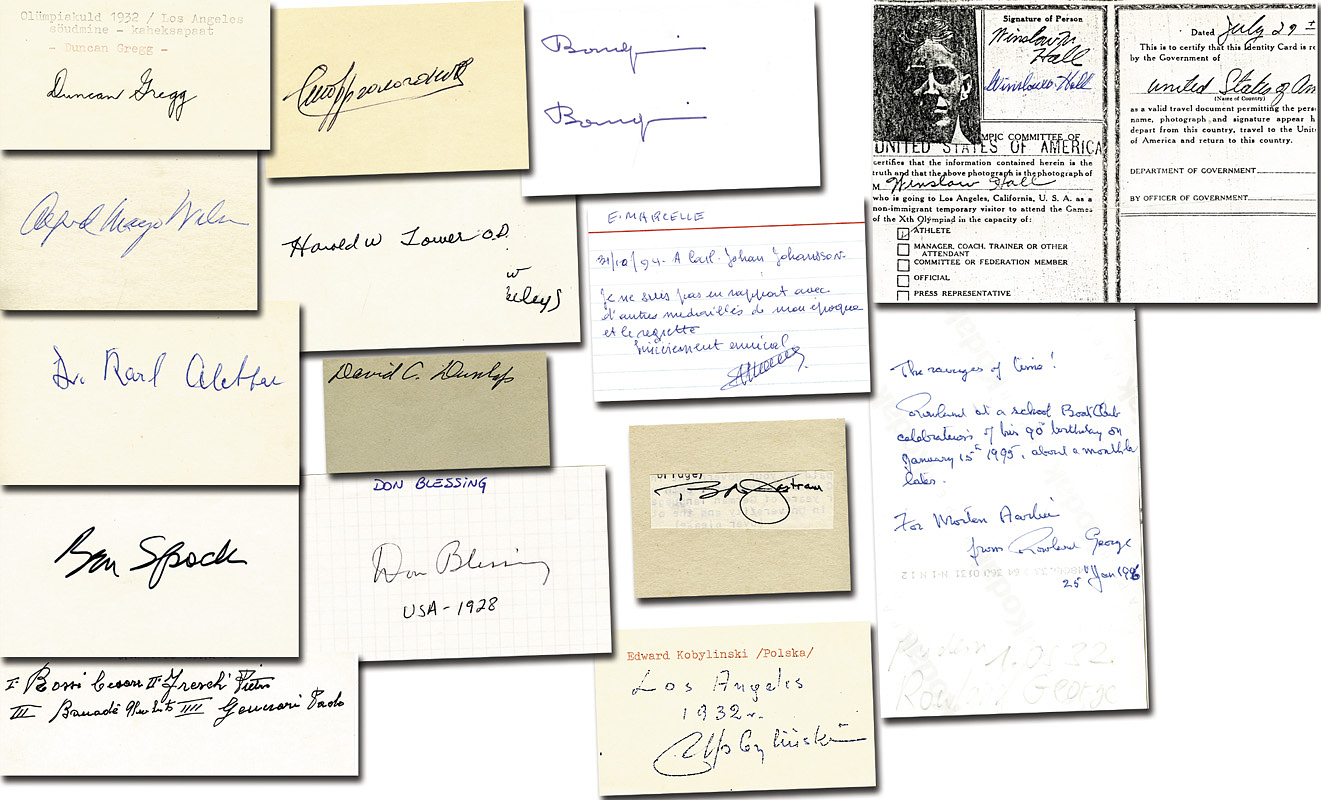 Olümpiakuld 1932 / Los Angeles
sõudmine - kaheksapaat
- Duncan Gregg -
Duncan Gregg
Bourq
Bourq
Signature of Person
Winslow
Hall
Winslow Hall
MPIC COMMITTEE OF
UNITED STATES OF AMERICA
certifies that the information contained herein is the
truth and that the above photograph is the photograph of
M Winslow Hall
who is going to Los Angeles, California, U. S. A. as a
non-immigrant temporary visitor to attend the Games
of the Xth Olympiad in the capacity of:
ATHLETE
MANAGER, COACH, TRAINER OR OTHER
ATTENDANT
COMMITTEE OR FEDERATION MEMBER
OFFICIAL
PRESS REPRESENTATIVE
Dated July 29
This is to certify that this Identity Card is
by the Government of
United States of Am
(Name of Country)
as a valid travel document permitting the
name, photograph and signature appear
depart from this country, travel to the
of America and return to this country.
DEPARTMENT OF GOVERNMENT
BY OFFICER OF GOVERNMENT
Alfred Mayo
Harold W Tower O.D.
E. MARCELLE
31/10/94. A Carl. Johan Johansson.
Je ne suis pas en rapport avec
d'autres médaillés de mon époque
et le regrette
amical
Dr. Karl
David C. Dunlop
The ravages of time!
Rowland at a school Boat Club
celebrations of his 90th birthday on
January 15th 1995, about a month
later.
For Morten Aarlia
from Rowland George
25th Jan 1996
1932.
Rowland George
Ben Spock
DON BLESSING
Don Blessing
USA - 1928
Edward Kobylinski /Polska/
Los Angeles
1932 r.
Kobyliński
I= Rossi Cesare II= Freschi Pietro
III Paolo